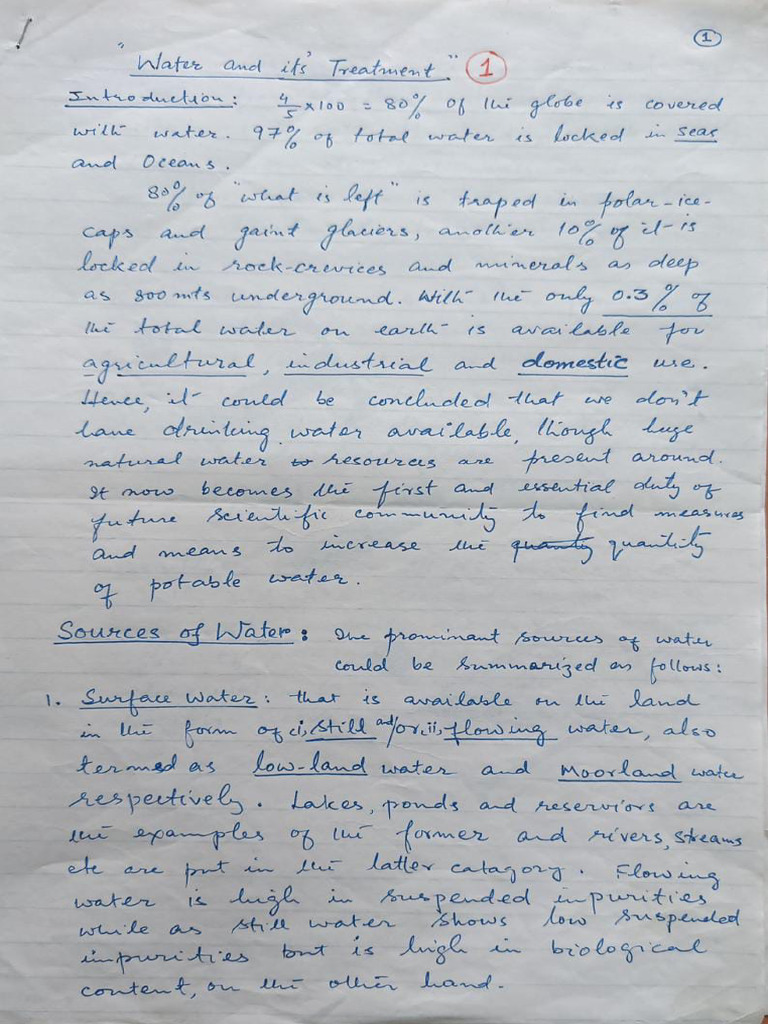 1
"Water and its' Treatment." 1
Introduction: 4/5 x 100 = 80% of the globe is covered
with water. 97% of total water is locked in seas
and Oceans.
80% of "what is left" is traped in polar-ice-
caps and gaint glaciers, another 10% of it is
locked in rock-crevices and minerals as deep
as 800 mts underground. With the only 0.3% of
the total water on earth is available for
agricultural, industrial and domestic use.
Hence, it could be concluded that we don't
have drinking water available, though huge
natural water resources are present around.
It now becomes the first and essential duty of
future scientific community to find measures
and means to increase the quantity quantity
of potable water.
Sources of Water: The prominant sources of water
could be summarized as follows:
1. Surface Water: that is available on the land
in the form of i, still and/or ii, flowing water, also
termed as low-land water and Moorland water
respectively. Lakes, ponds and reserviors are
the examples of the former and rivers, streams
etc are put in the latter catagory. Flowing
water is high in suspended impurities
while as still water shows low suspended
impurities but is high in biological
content, on the other hand.